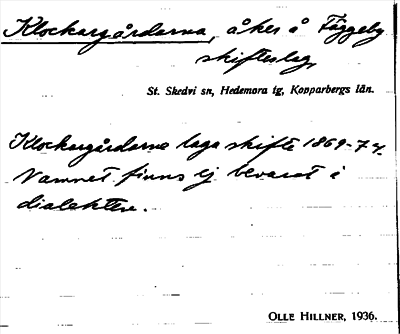 Klockargårdarna, åker å Fäggeby
skifteslag,
St. Skedvi sn, Hedemora tg, Kopparbergs län.
Klockargårdarne laga skifte 1869-74.
Namnet finns ej bevarat i
dialekten.
OLLE HILLNER, 1936.